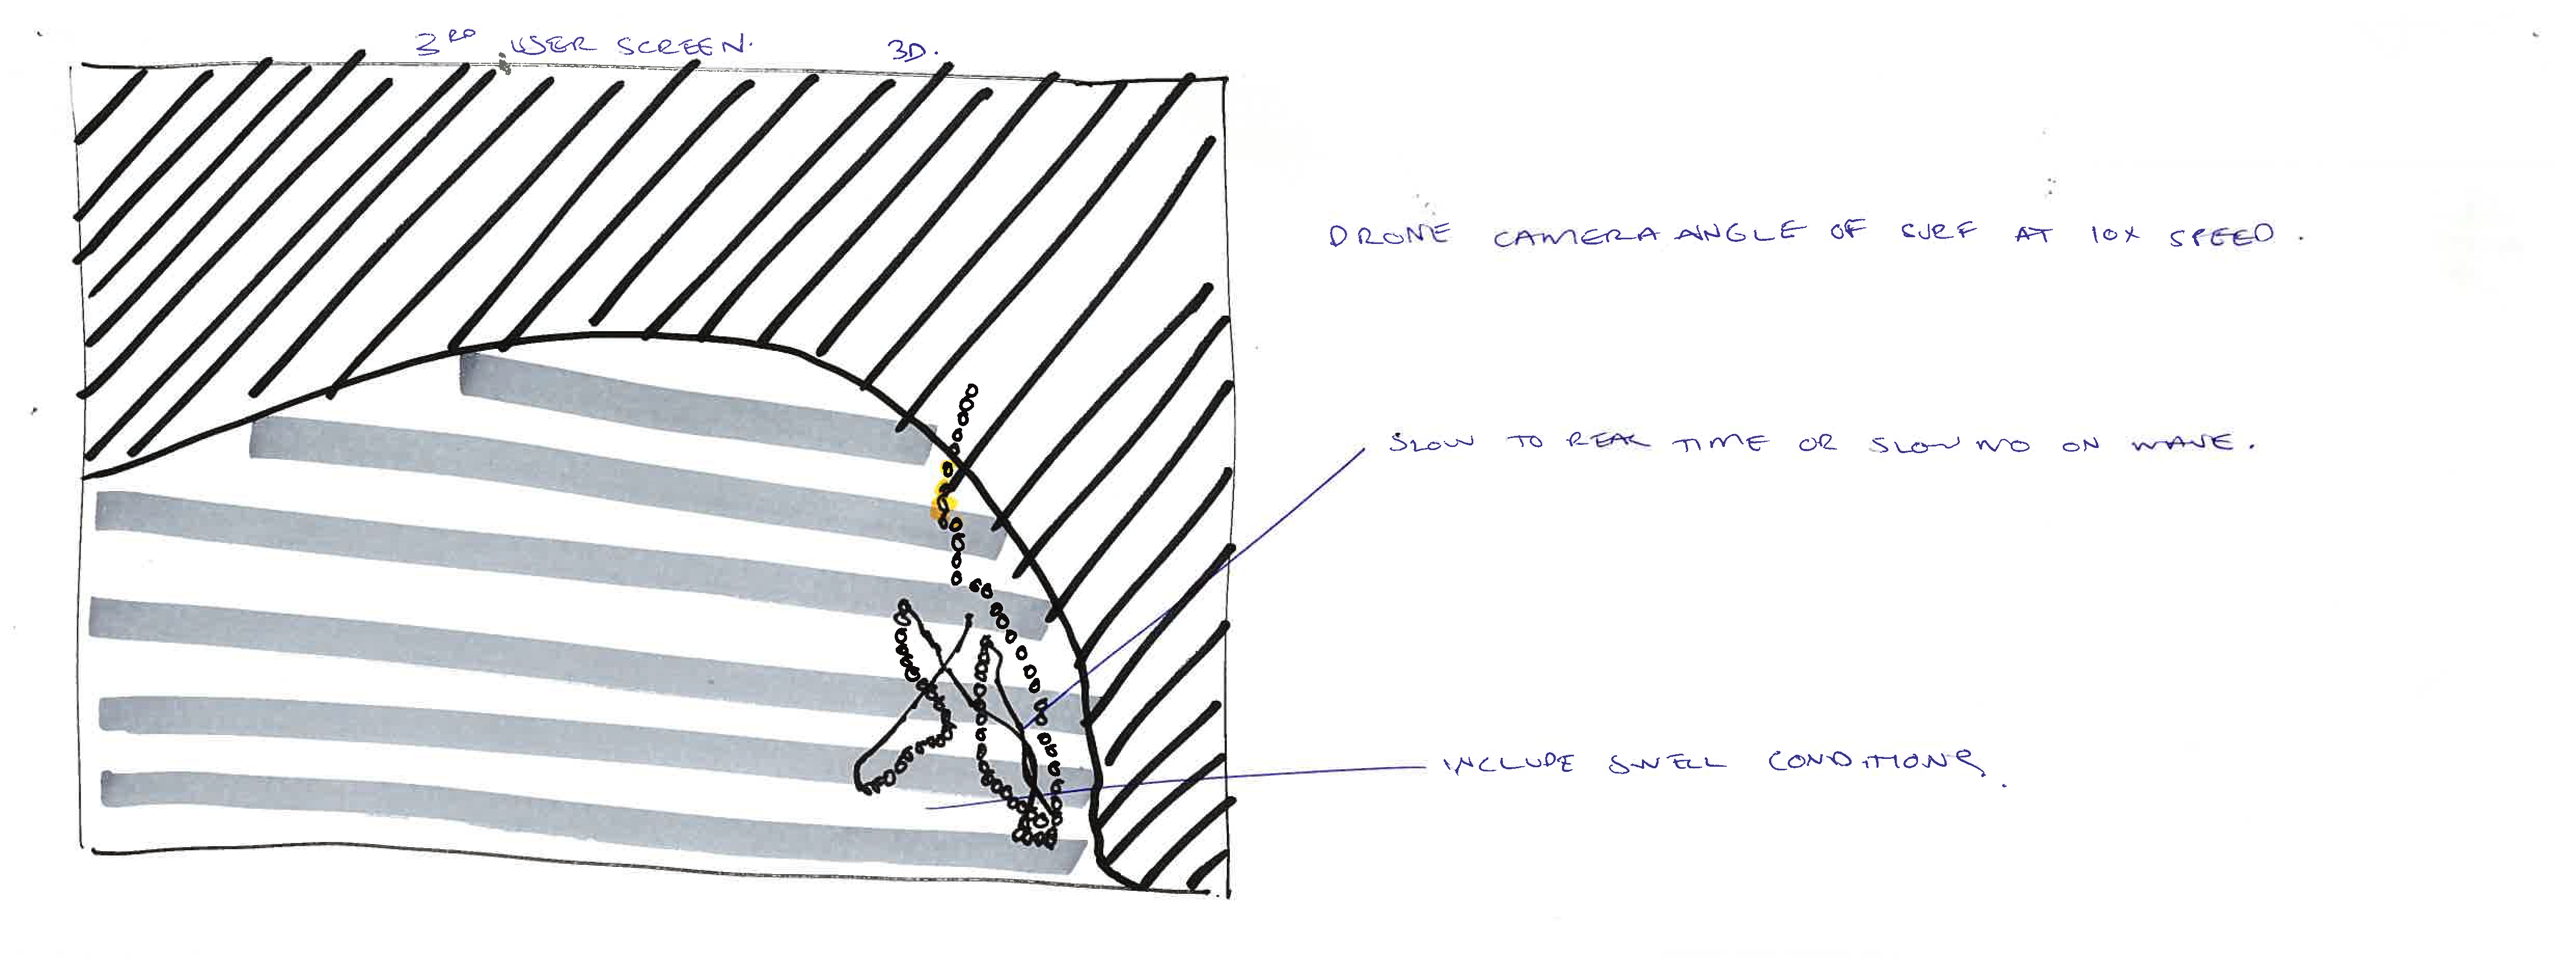 3RD USER SCREEN. 3D.
DRONE CAMERA ANGLE OF SURF AT 10X SPEED.
SLOW TO REAL TIME OR SLOW MO ON WAVE.
INCLUDE SWELL CONDITIONS.